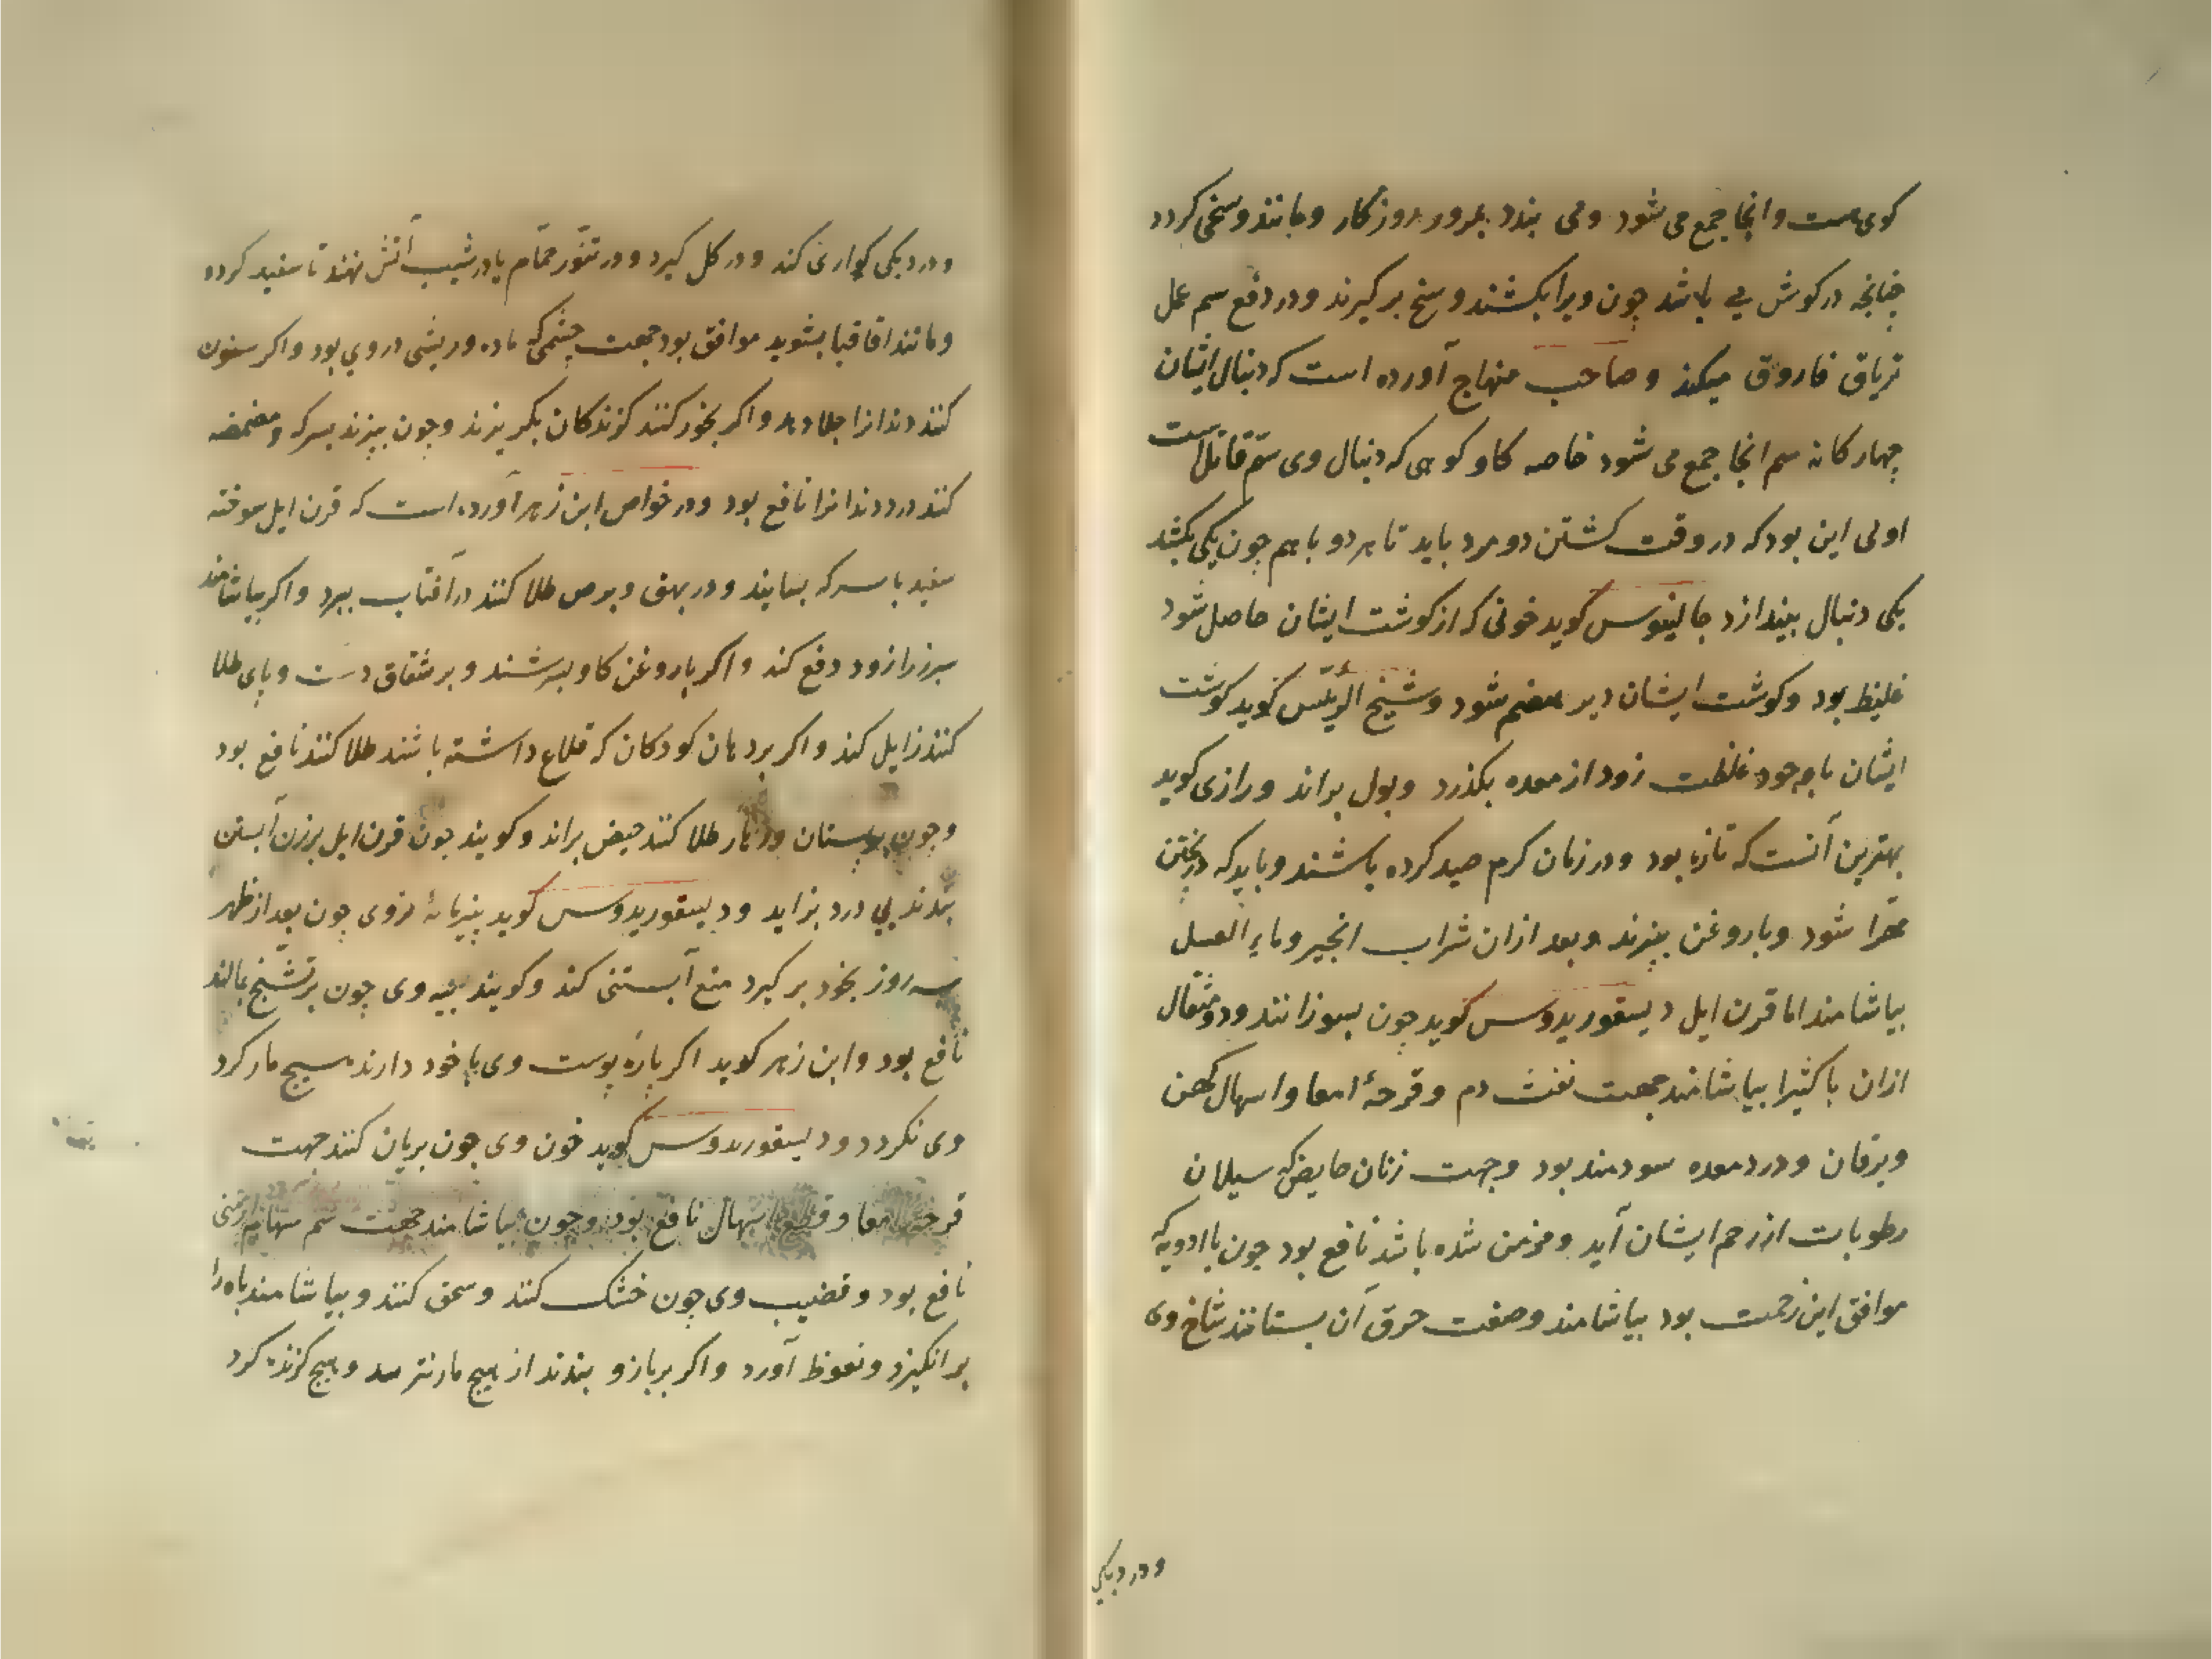 کوی هست و انجا جمع می شود و می بندد بمرور روزکار و مانند وسخی کردد
چنانچه در کوش می باشد چون ویرا بکشند وسخ برکیرند و در دفع سم عمل
تریاق فاروق میکند و صاحب منهاج آورده است که دنبال ایشان
چهار کانه سم انجا جمع می شود خاصه کاو کوهی که دنبال وی سم قاتل است
اولی این بود که در وقت کشتن دو مرد باید تا هر دو با هم چون یکی بکشد
یکی دنبال بیندازد جالینوس کوید خونی که از کوشت ایشان حاصل شود
غلیظ بود و کوشت ایشان دیر هضم شود و شیخ الرئیس کوید کوشت
ایشان با وجود غلظت زود از معده بکذرد و بول براند و رازی کوید
بهترین آنست که تازه بود و در زمان کرم صید کرده باشند و باید که در پختن
مهرا شود و با روغن بپزند و بعد ازان شراب انجیر و ماء العسل
بیاشامند اما قرن ایل دیسقوریدوس کوید چون بسوزانند و دو مثقال
ازان با کثیرا بیاشامند جهت نفث دم و قرحهٔ امعا و اسهال کهن
و یرقان و درد معده سودمند بود و جهت زنان حایض که سیلان
رطوبات از رحم ایشان آید و مزمن شده باشد نافع بود چون با ادویه که
موافق این زحمت بود بیاشامند و صفت حرق آن بستانند شاخ وی
و در دیکی
و در دیکی کواری کند و در کل کیرد و در تنور حمام یا در شیب آتش نهند تا سفید کردد
و مانند اقاقیا بشوید موافق بود جهت چشمی که ماده و ریشی در وی بود و اکر سنون
کنند دندانرا جلا دهد و اکر بخور کنند کزندکان بکریزند و چون بپزند بسرکه و مضمضه
کنند درد دندانرا نافع بود و در خواص ابن زهر آورده است که قرن ایل سوخته
سفید با سرکه بسایند و در بهق و برص طلا کنند در آفتاب ببرد و اکر بیاشامند
سپرز را زود دفع کند و اکر با روغن کاو بسرشند و بر شقاق دست و پای طلا
کنند زایل کند و اکر بر دهان کودکان که قلاع داشته باشند طلا کنند نافع بود
و چون بر پستان و زهار طلا کنند حیض براند و کویند چون قرن ایل بر زن آبستن
بندند بی درد بزاید و دیسقوریدوس کوید پنیرمایهٔ وی چون بعد از طهر
سه روز بخود برکیرد منع آبستنی کند و کویند پیه وی چون بر تشنج مالند
نافع بود و ابن زهر کوید اکر پارهٔ پوست وی با خود دارند هیچ مار کرد
وی نکردد و دیسقوریدوس کوید خون وی چون بریان کنند جهت
قرحهٔ امعا و قطع اسهال نافع بود و چون بیاشامند جهت سم سهام ارمنی
نافع بود و قضیب وی چون خشک کنند و سحق کنند و بیاشامند باه را
برانکیزد و نعوظ آورد و اکر بر بازو بندند از هیچ مار نترسد و هیچ کزنده کرد